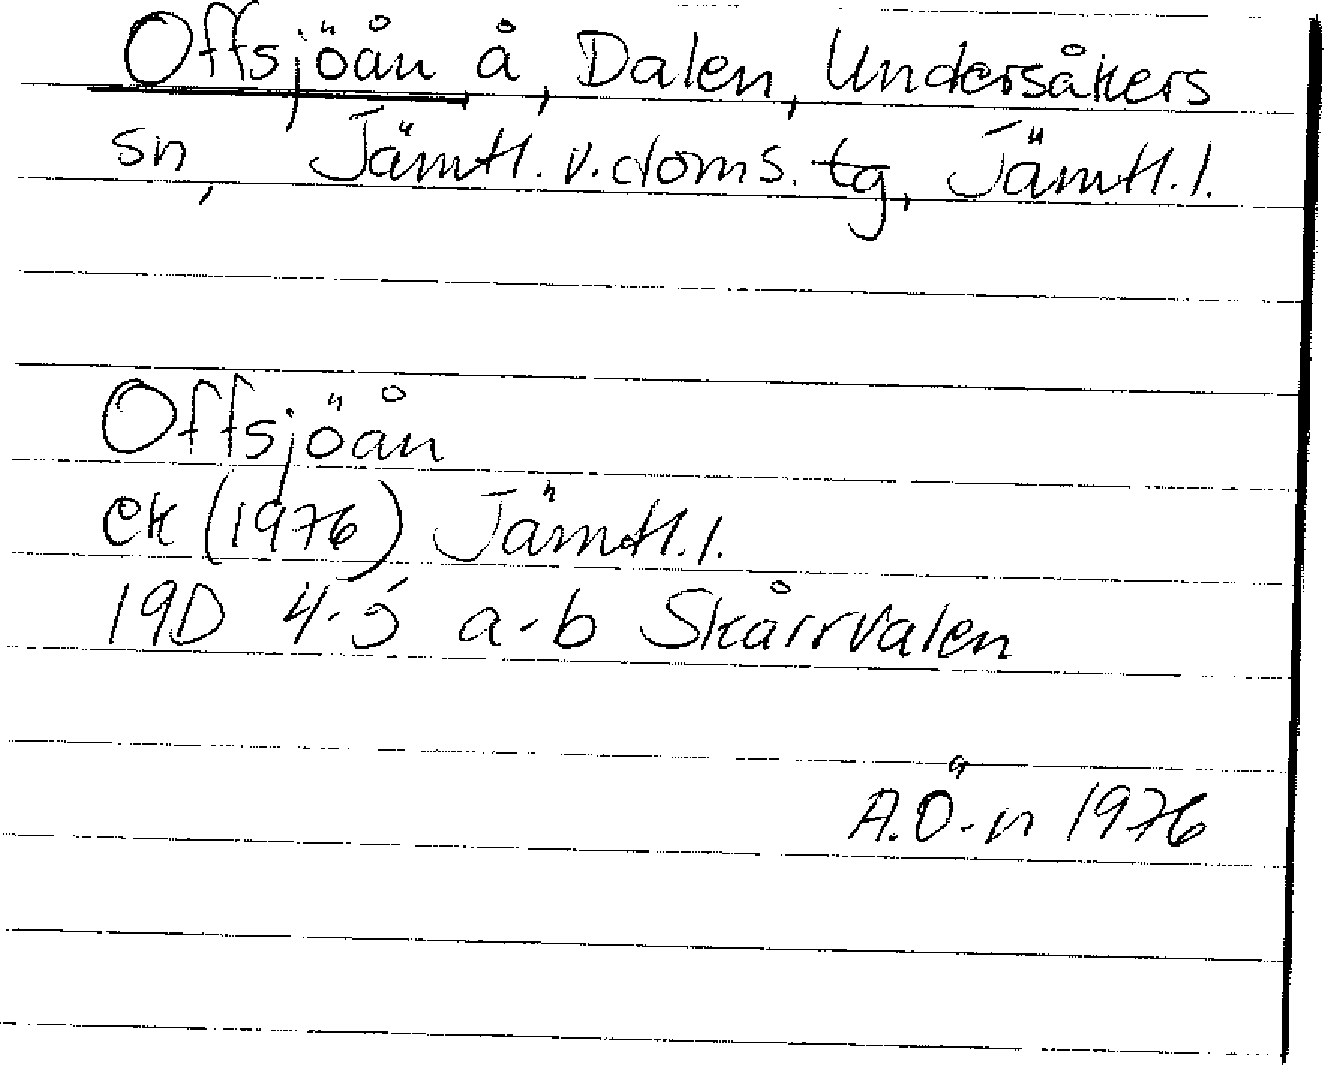 Offsjöån, å, Dalen, Undersåkers
sn, Jämtl. v. doms. tg, Jämtl. l.
Offsjöån
ek (1976) Jämtl. l.
19D 4-5 a-b Skårrvalen
A.Ö-n 1976